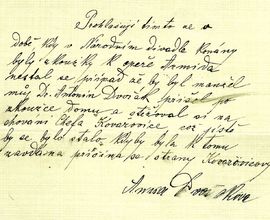 Prohlašuji tímto že v
době kdy v Národním divadle konány
byly zkoušky k opeře Armida
nestal se případ že by byl manžel
můj Dr. Antonín Dvořák přišel po
zkoušce domu a stěžoval si na
chování Chefa Kovařovice, což jistě
by se bylo stalo, kdyby byla k tomu
zavdána příčina po strany Kovařovicovy
Anna Dvořáková